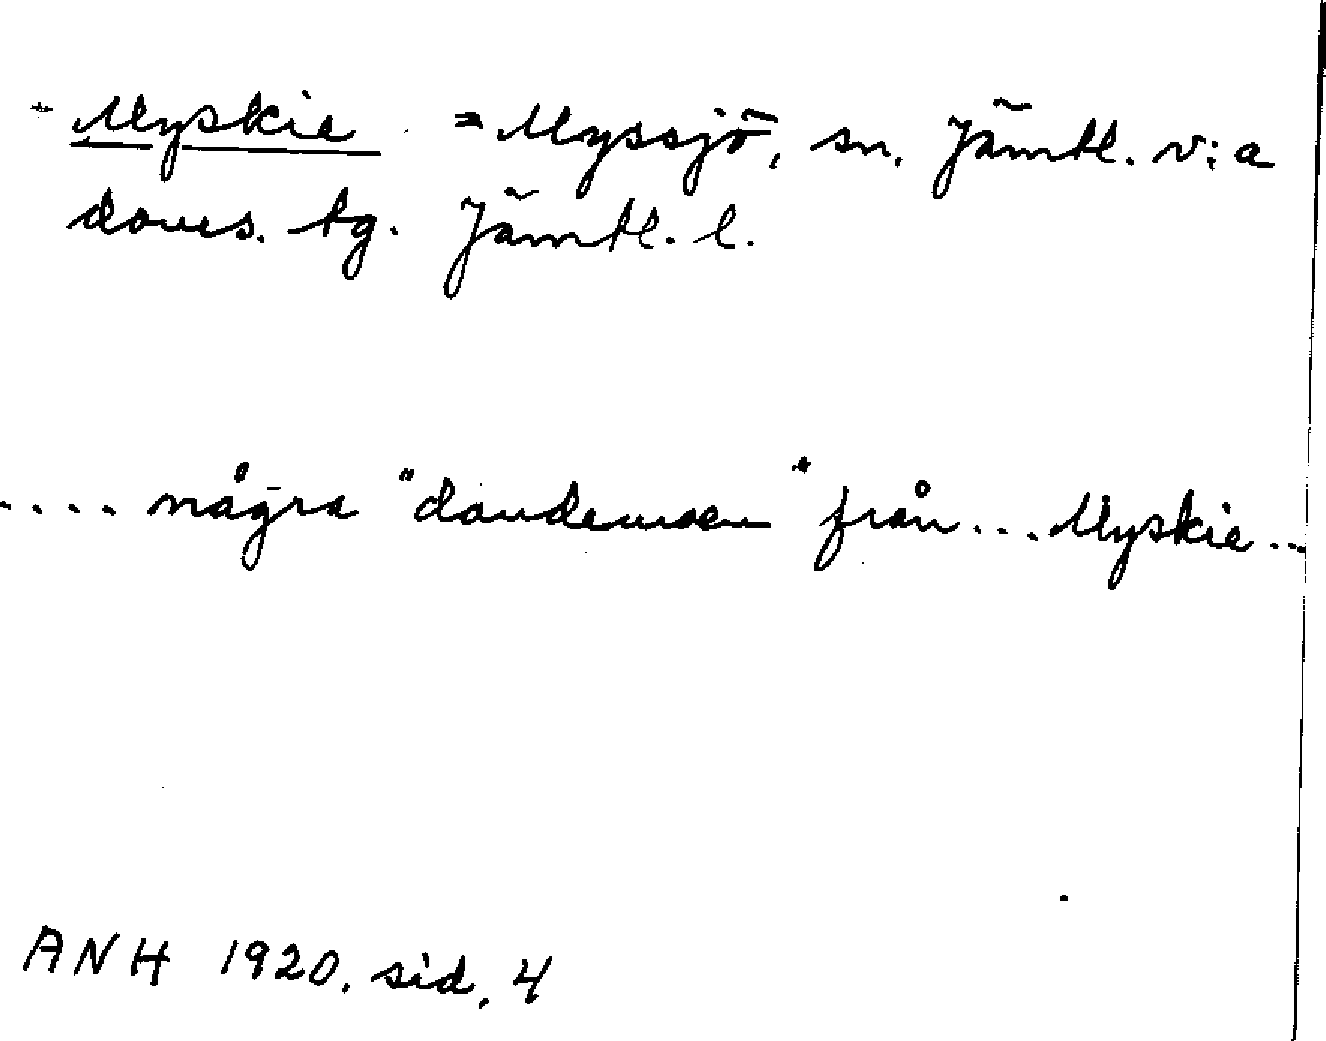 Myskie = Myssjö, sn. Jämtl. v:a
doms. tg. Jämtl. l.
.... några "dandemæn" från... Myskie...
ANH 1920. sid. 4